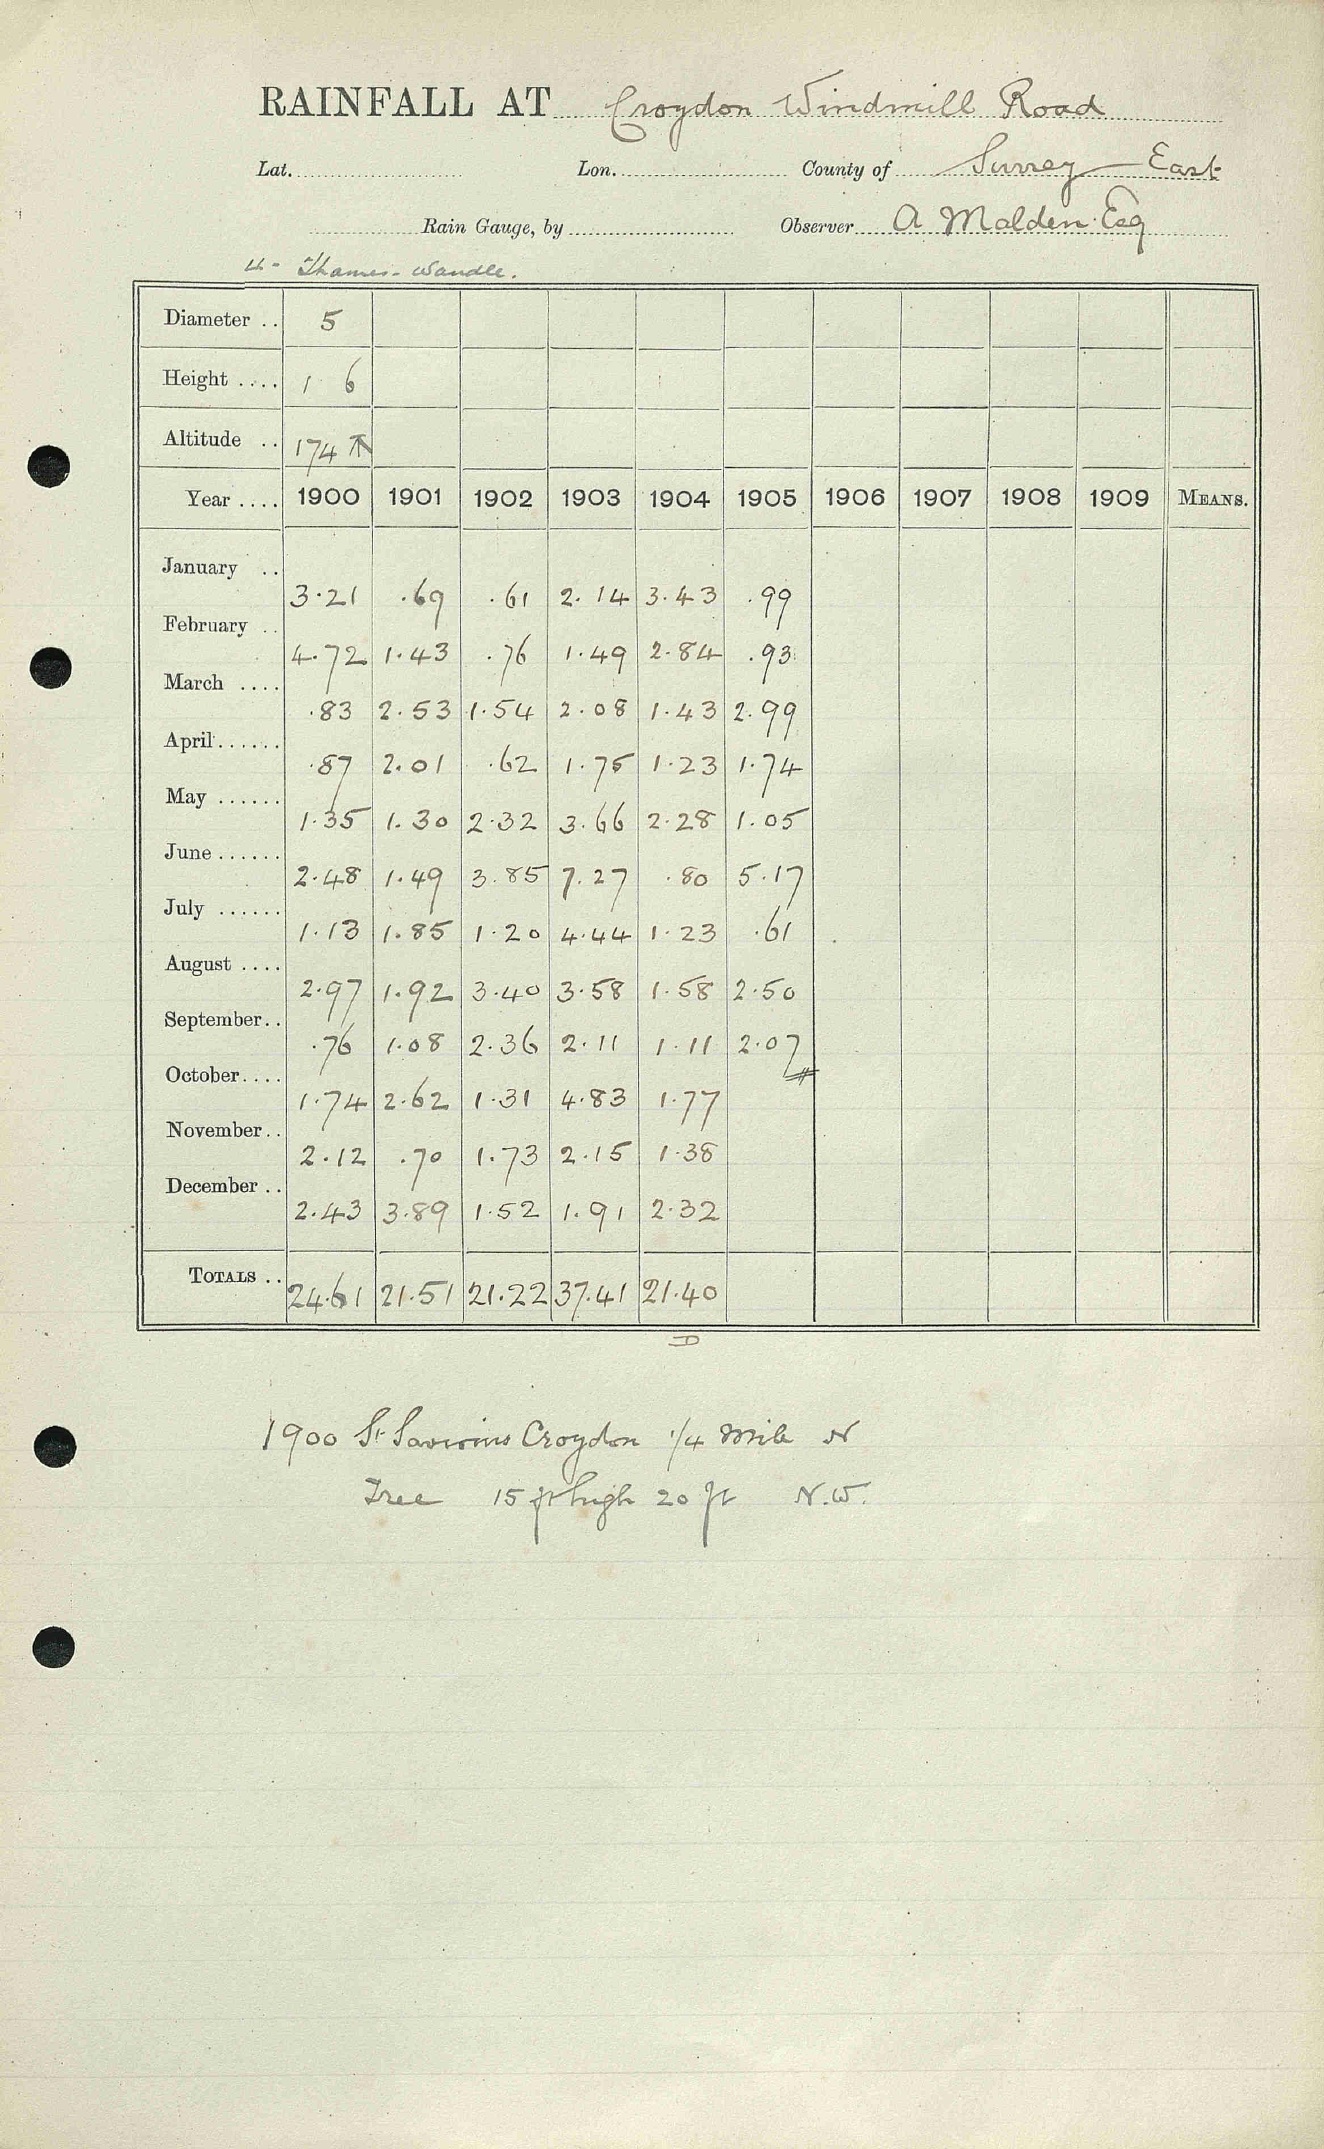 RAINFALL AT Croydon Windmill Road
Lat. Lon. County of Surrey East
Rain Gauge, by Observer A Malden Esq
4- Thames-Wandle.
Diameter .. 5
Height .... 1 6
Altitude .. 174
Year .... 1900 1901 1902 1903 1904 1905 1906 1907 1908 1909 MEANS.
January .. 3.21 .69 .61 2.14 3.43 .99
February .. 4.72 1.43 .76 1.49 2.84 .93
March .... .83 2.53 1.54 2.08 1.43 2.99
April...... .87 2.01 .62 1.75 1.23 1.74
May ...... 1.35 1.30 2.32 3.66 2.28 1.05
June...... 2.48 1.49 3.85 7.27 .80 5.17
July ...... 1.13 1.85 1.20 4.44 1.23 .61
August .... 2.97 1.92 3.40 3.58 1.58 2.50
September.. .76 1.08 2.36 2.11 1.11 2.07
October.... 1.74 2.62 1.31 4.83 1.77
November.. 2.12 .70 1.73 2.15 1.38
December .. 2.43 3.89 1.52 1.91 2.32
TOTALS .. 24.61 21.51 21.22 37.41 21.40
D
1900 St Saviours Croydon 1/4 Mile N
Tree 15 ft high 20 ft N.W.